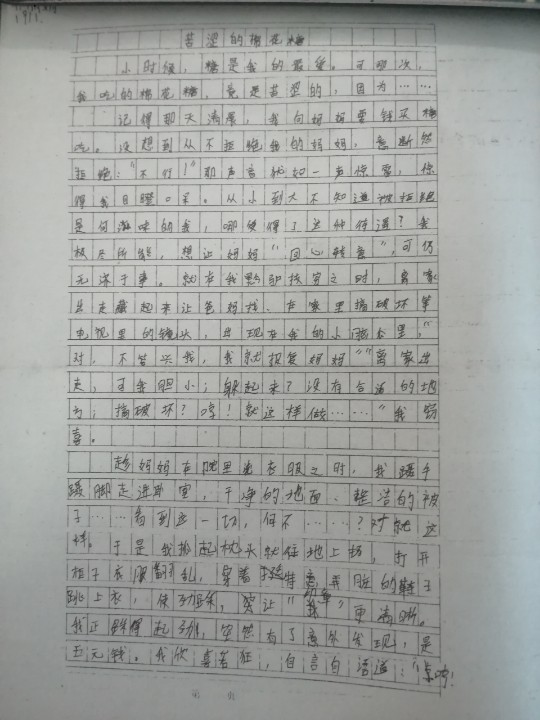 1911.
苦涩的棉花糖
小时候，糖是我的最爱。可那次，
我吃的棉花糖，竟是苦涩的，因为……
记得那天清晨，我向妈妈要钱买糖
吃。没想到从不拒绝我的妈妈，意断然
拒绝："不行！"那声音犹如一声惊雷，惊
得我目瞪口呆。从小到大不知道被拒绝
是何滋味的我，哪受得了这种待遇？我
极尽所能，想让妈妈"回心转意"，可仍
无济于事。就在我黔驴技穷之时，离家
出走藏起来让爸妈找、在家里搞破坏等
电视里的镜头，出现在我的小脑袋里，"
对，不给买我，我就报复妈妈""离家出
走，可我胆小；躲起来？没有合适的地
方；搞破坏？哼！就这样做……"我窃
喜。
趁妈妈在院里洗衣服之时，我蹑手
蹑脚走进卧室，干净的地面、整洁的被
子……看到这一切，何不……？对就这
样。于是我抬起枕头就往地上扔，打开
柜子衣服翻乱，穿着特意弄脏的鞋子
跳上衣，使劲踩，突让"印章"更清晰。
我正踩得起劲，突然有了意外发现，是
五元钱。我欣喜若狂，自言自语道："哼哼！